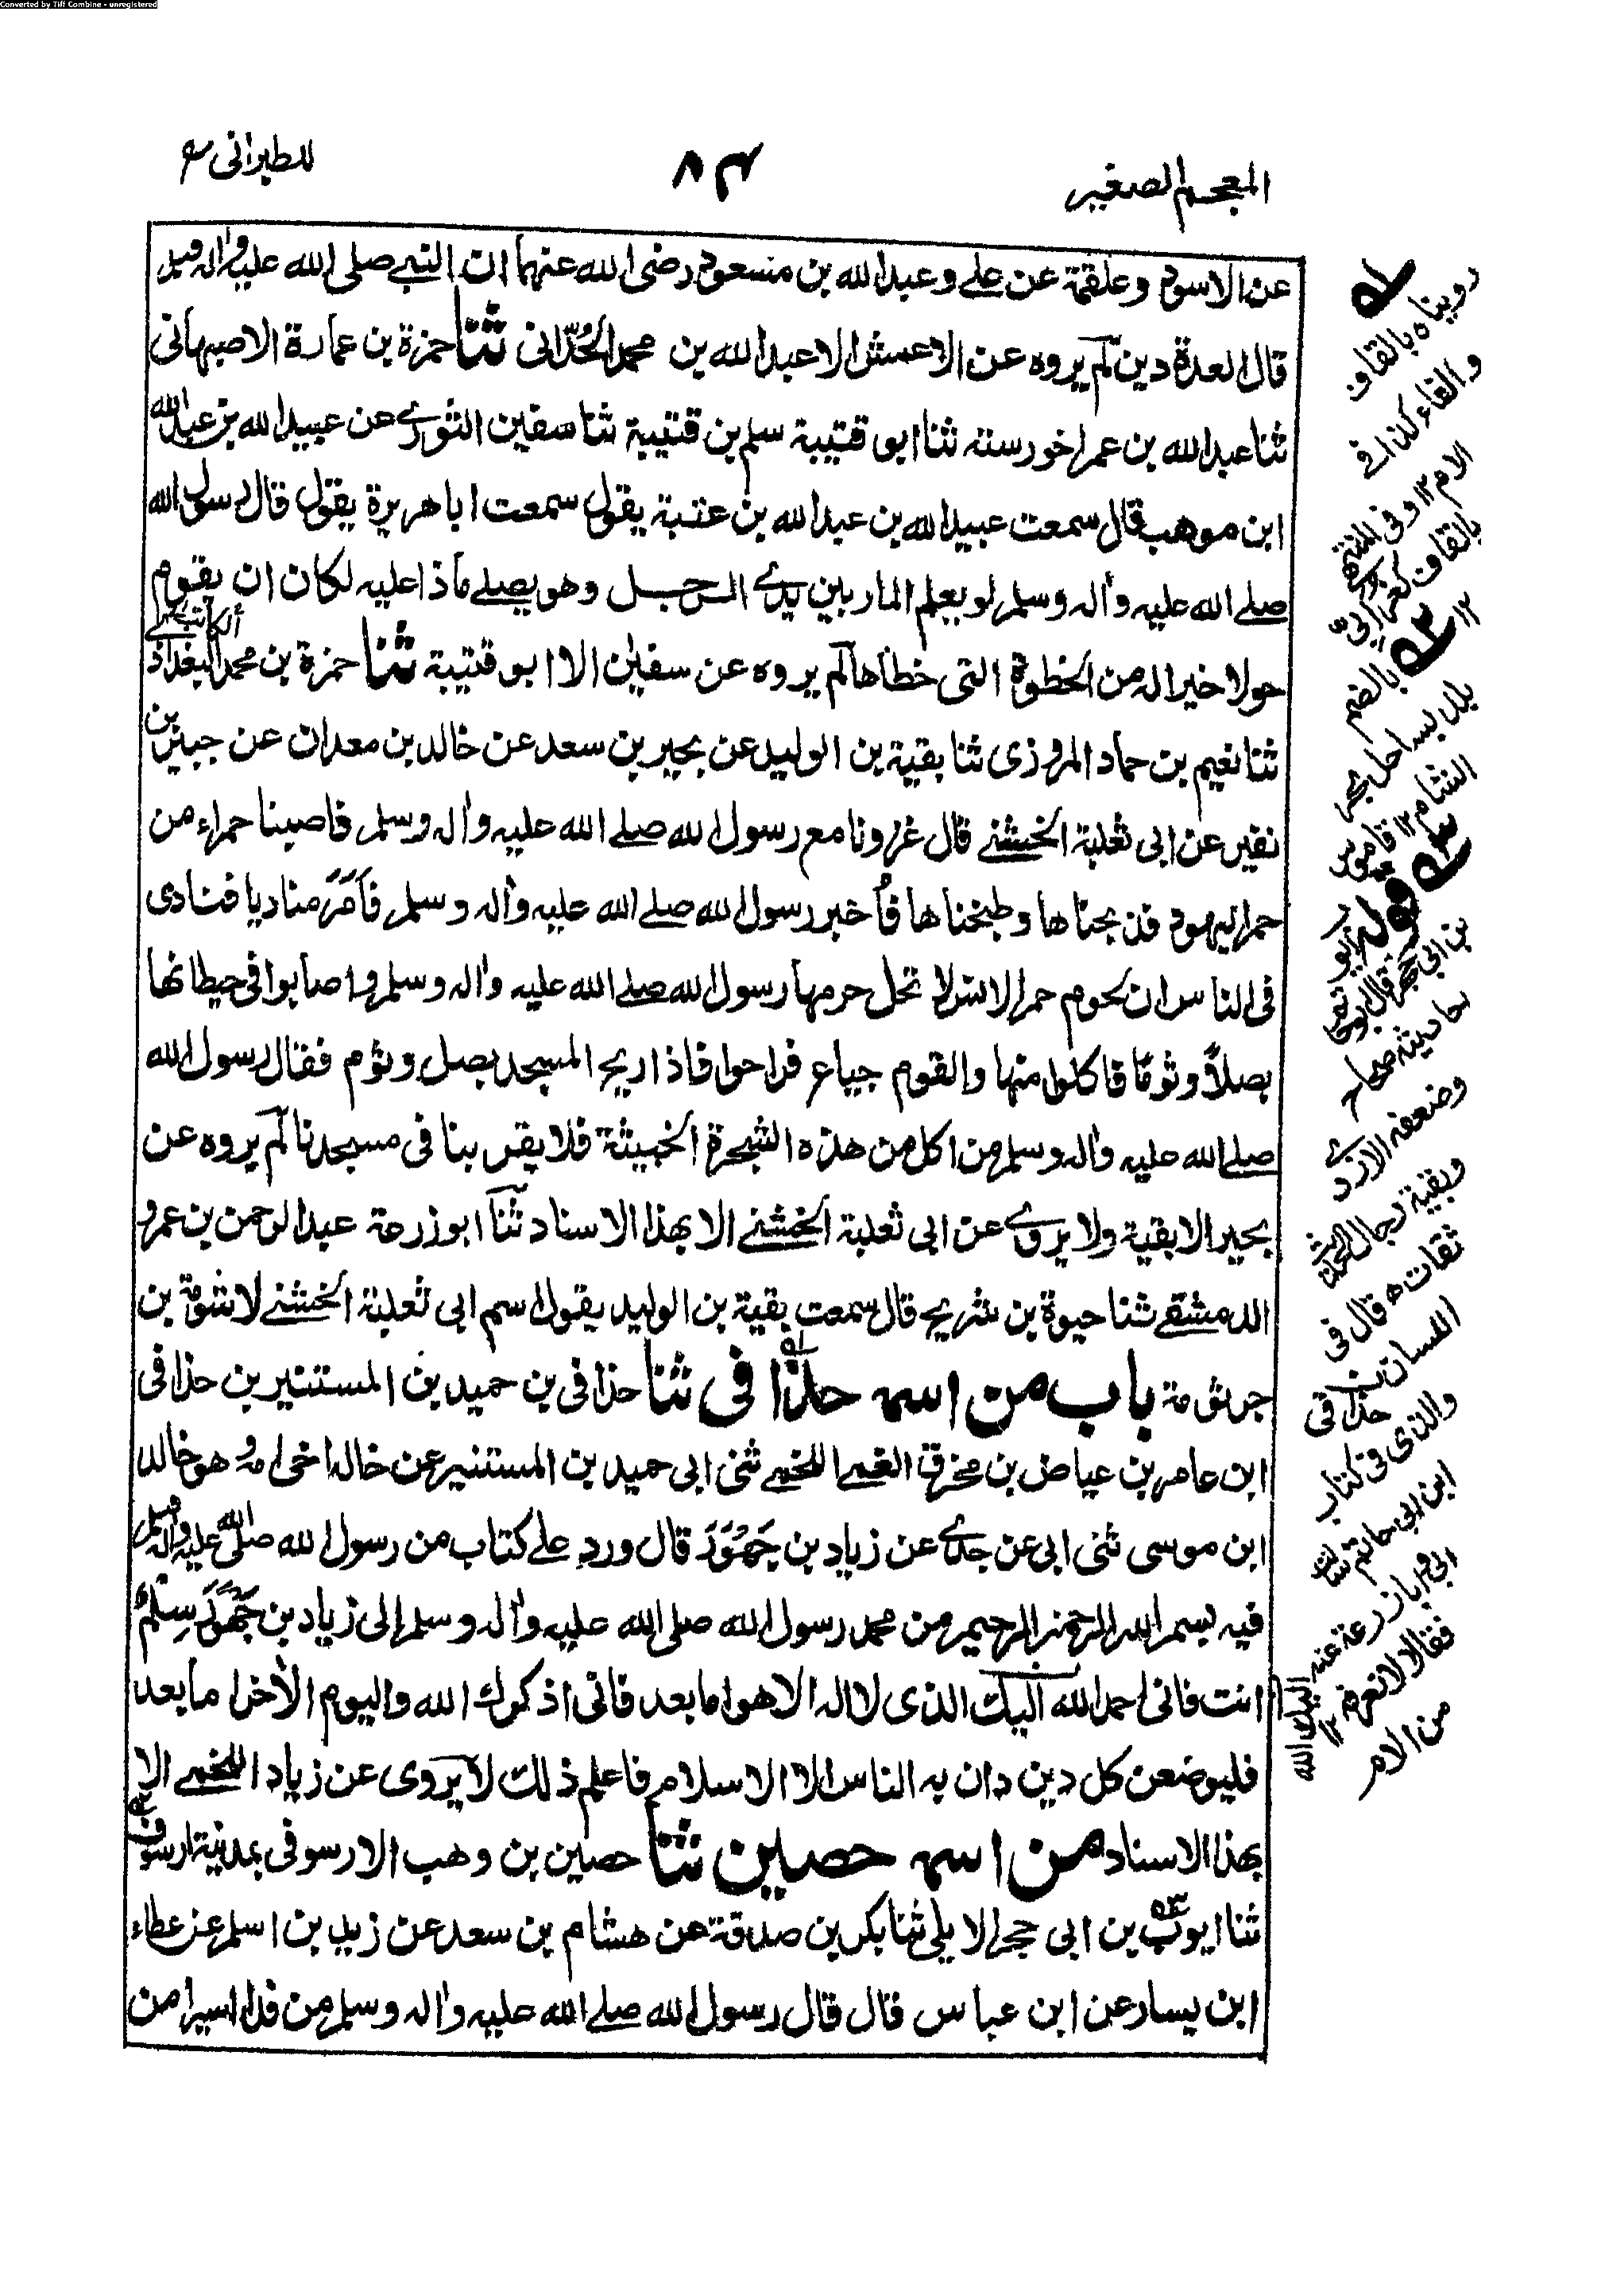 Converted by Tiff Combine - unregistered
المعجم الصغير
٨٤
للطبرانی
عن الاسود وعلقمة عن علی وعبد الله بن مسعود رضی الله عنهما ان النبی صلی الله علیه واله وسلم
قال العدة دين لم يروه عن الاعمش الا عبد الله بن محمد الحُدّانی ثنا حمزة بن عمارة الاصبهانی
ثنا عبد الله بن عمر اخو رسته ثنا ابو قتيبة سلم بن قتيبة ثنا سفين الثوری عن عبيد الله بن عبد الله
ابن موهب قال سمعت عبيد الله بن عبد الله بن عتبة يقول سمعت ابا هريرة يقول قال رسول الله
صلی الله علیه واله وسلم لو يعلم المار بين يدی الرجل وهو يصلی ماذا عليه لكان ان يقوم
حولا خير اله من الخطوة التی خطاها لم يروه عن سفين الا ابو قتيبة ثنا حمزة بن محمد الكاتب البغدادی
ثنا نعيم بن حماد المروزی ثنا بقية بن الوليد عن بحير بن سعد عن خالد بن معدان عن جبير بن
نفير عن ابی ثعلبة الخشنی قال غزونا مع رسول الله صلی الله علیه واله وسلم فاصبنا حمراء من
حمر اليهود فذبحناها وطبخناها فأخبر رسول الله صلی الله علیه واله وسلم فأمَرَ مناديا فنادی
فی الناس ان لحوم حمر الانس لا تحل حرمها رسول الله صلی الله علیه واله وسلم واصابوا فی حيطانها
بصلاً وثومًا فاكلوا منها والقوم جياع فراحوا فاذا ريح المسجد بصل وثوم فقال رسول الله
صلی الله علیه واله وسلم من اكل من هذه الشجرة الخبيثة فلا يقربنا فی مسجدنا لم يروه عن
بحير الا بقية ولا يروی عن ابی ثعلبة الخشنی الا بهذا الاسناد ثنا ابو زرعة عبد الرحمن بن عمرو
الدمشقی ثنا حيوة بن شريح قال سمعت بقية بن الوليد يقول اسم ابی ثعلبة الخشنی لاشومة بن
جرثومة باب من اسمه حذاقی ثنا حذاقی بن حميد بن المستنير بن حذاقی
ابن عامر بن عياض بن مخرق اللخمی ثنی ابی حميد بن المستنير عن خاله اخی امه وهو خالد
ابن موسی ثنی ابی عن جدی عن زياد بن جَهْوَرَ قال ورد علی كتاب من رسول الله صلی الله علیه واله وسلم
فيه بسم الله الرحمن الرحيم من محمد رسول الله صلی الله علیه واله وسلم إلی زياد بن جَهْوَر سِلْمٌ
انت فانی احمد الله اليك الذی لا اله الا هو اما بعد فانی اذكرك الله واليوم الأخر اما بعد
فليوضعن كل دين دان به الناس الا الاسلام فاعلم ذلك لا يروی عن زياد اللخمی الا
بهذا الاسناد من اسمه حصين ثنا حصين بن وهب الارسوفی بمدينة ارسوف
ثنا ايوب بن ابی حجر الايلی ثنا بكر بن صدقة عن هشام بن سعد عن زيد بن اسلم عن عطاء
ابن يسار عن ابن عباس قال قال رسول الله صلی الله علیه واله وسلم من فدا اسيرا من
رويناه بالقاف
والفاء كذا فی
الام ١٢ وفی المشتبه
بالقاف
١٢
بالضم
بلد بساحل بحر
الشام ١٢ قاموس
قوله ايوب
بن ابی حجر قال
احاديثه صحاح
وضعفه الازدی
وبقية رجاله
ثقات قال فی
اللسان
حذاقی
والذی فی كتاب
ابن ابی حاتم سالت
ابی وابا زرعة عنه
فقالا لا نعرفه ١٢
من الام